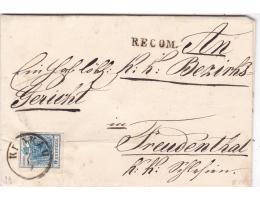 RECOM.
An
Ein k.k. Bezirks
Gericht
in
Freudenthal
k. k. Schlesien.